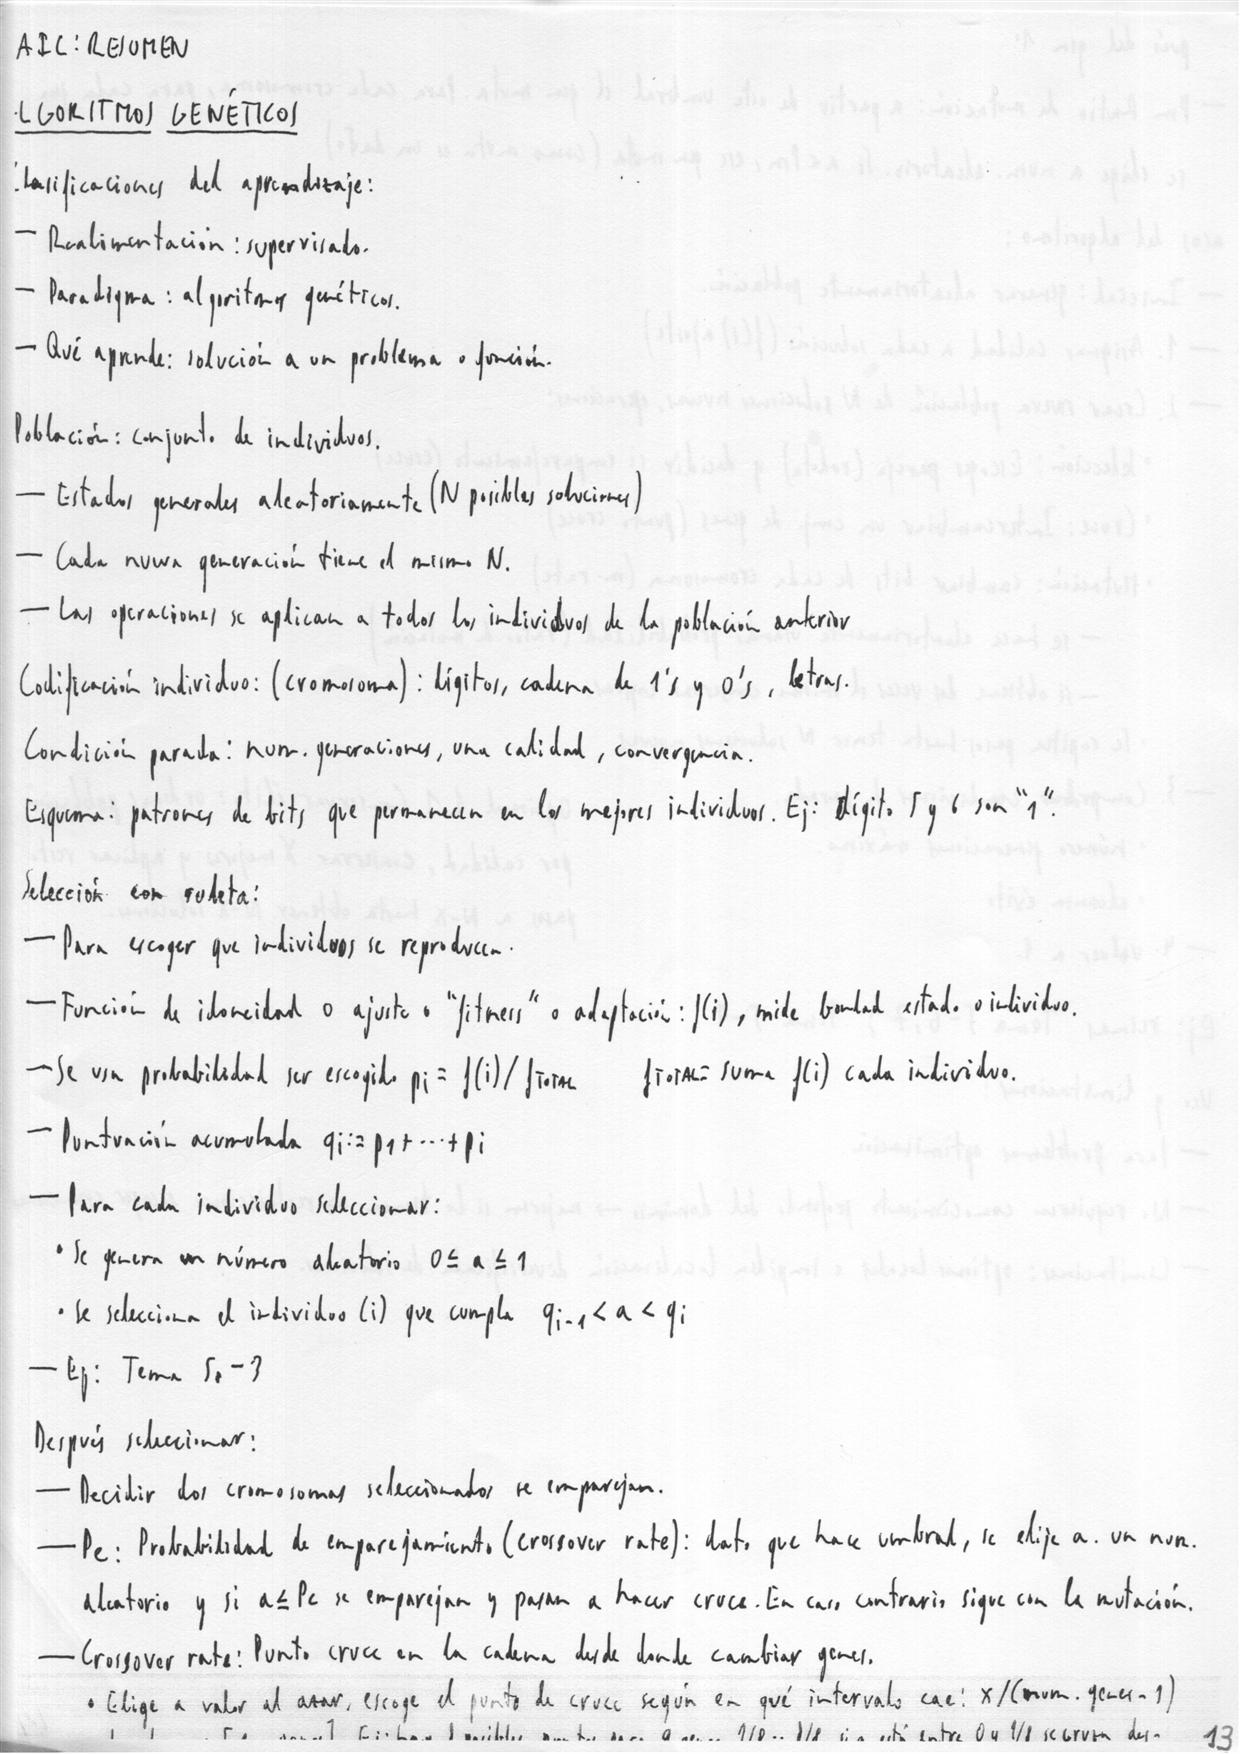 AIC: RESUMEN
LGORITMOS GENÉTICOS
lasificaciones del aprendizaje:
- Realimentación: supervisado.
- Paradigma: algoritmos genéticos.
- Qué aprende: solución a un problema o función.
Población: conjunto de individuos.
- Estados generales aleatoriamente (N posibles soluciones)
- Cada nueva generación tiene el mismo N.
- Las operaciones se aplican a todos los individuos de la población anterior
Codificación individuo: (cromosoma): dígitos, cadena de 1's y 0's, letras.
Condición parada: num. generaciones, una calidad, convergencia.
Esquema: patrones de bits que permanecen en los mejores individuos. Ej: dígito 5 y 6 son "1".
Selección con ruleta:
- Para escoger que individuos se reproducen.
- Función de idoneidad o ajuste o "fitness" o adaptación: f(i), mide bondad estado o individuo.
- Se usa probabilidad ser escogido pi = f(i)/fTOTAL fTOTAL = suma f(i) cada individuo.
- Puntuación acumulada qi := p1 + ... + pi
- Para cada individuo seleccionar:
• Se genera un número aleatorio 0 ≤ a ≤ 1
• Se selecciona el individuo (i) que cumpla qi-1 < a < qi
- Ej: Tema 5. - 3
Después seleccionar:
- Decidir dos cromosomas seleccionados se emparejan.
- Pc: Probabilidad de emparejamiento (crossover rate): dato que hace umbral, se elije a. un num.
aleatorio y si a ≤ Pc se emparejan y pasan a hacer cruce. En caso contrario sigue con la mutación.
- Crossover rate: Punto cruce en la cadena desde donde cambiar genes.
• Elige a valor al azar, escoge el punto de cruce según en qué intervalo cae: x/(num. genes-1)
13